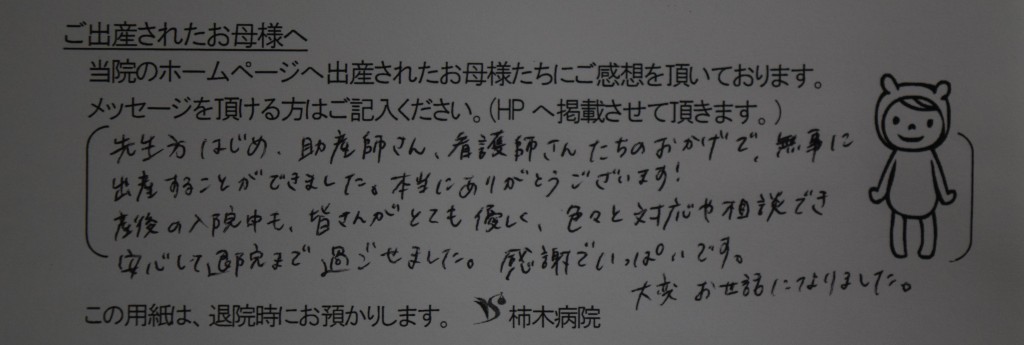 ご出産されたお母様へ
当院のホームページへ出産されたお母様たちにご感想を頂いております。
メッセージを頂ける方はご記入ください。（HPへ掲載させて頂きます。）
先生方はじめ、助産師さん、看護師さんたちのおかげで、無事に
出産することができました。本当にありがとうございます!
産後の入院中も、皆さんがとても優しく、色々と対応や相談でき
安心して退院まで過ごせました。感謝でいっぱいです。
大変お世話になりました。
この用紙は、退院時にお預かりします。 柿木病院